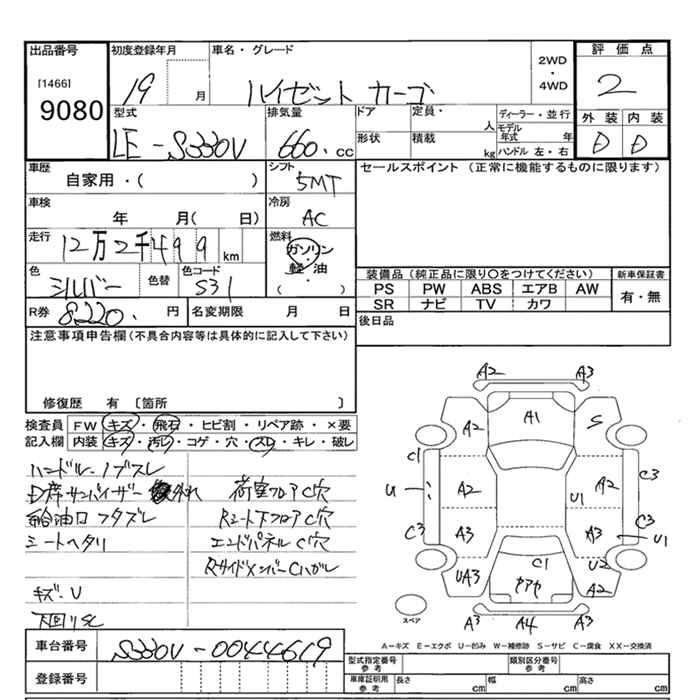 出品番号
[1466]
9080
初度登録年月
19 月
車名・グレード
ハイゼット カーゴ
2WD
・
4WD
評価点
2
外装 内装
D D
型式
LE-S330V
排気量
660. cc
ドア
形状
定員・
人
積載
kg
ディーラー・並行
モデル年式 年
ハンドル 左・右
車歴
自家用・( )
シフト
5MT
セールスポイント (正常に機能するものに限ります)
車検
年 月( 日)
冷房
AC
走行
12万2千499 km
燃料
ガソリン
・
軽油
( )
色
シルバー
色替
色コード
S31
装備品(純正品に限り○をつけてください)
新車保証書
PS PW ABS エアB AW
SR ナビ TV カワ
有・無
R券 8220. 円
名変期限 月 日
後日品
注意事項申告欄(不具合内容等は具体的に記入して下さい)
修復歴 有 〔箇所 〕
検査員
記入欄
FW キズ・飛石・ヒビ割・リペア跡・×要
内装 キズ・汚レ・コゲ・穴・スレ・キレ・破レ
ハンドル・ノブスレ
D席サンバイザー 外れ
給油口フタズレ
シートヘタリ
キズ・U
下回りSC
荷室フロアC穴
Rシート下フロアC穴
エンドパネルC穴
RサイドメンバーCハガレ
A2 A3
A2 A1 S
C1 C3
U A2 U1 A2
C3 A3 A3 C3 U1
UA3 C1 U2
カアヤ A2
A3 A4 A3
スペア
A-キズ E-エクボ U-凹み W-補修跡 S-サビ C-腐食 XX-交換済
車台番号
S330V-0044619
登録番号
型式指定番号
参考
類別区分番号
参考
車庫証明用
参考
長さ cm
幅 cm
高さ cm